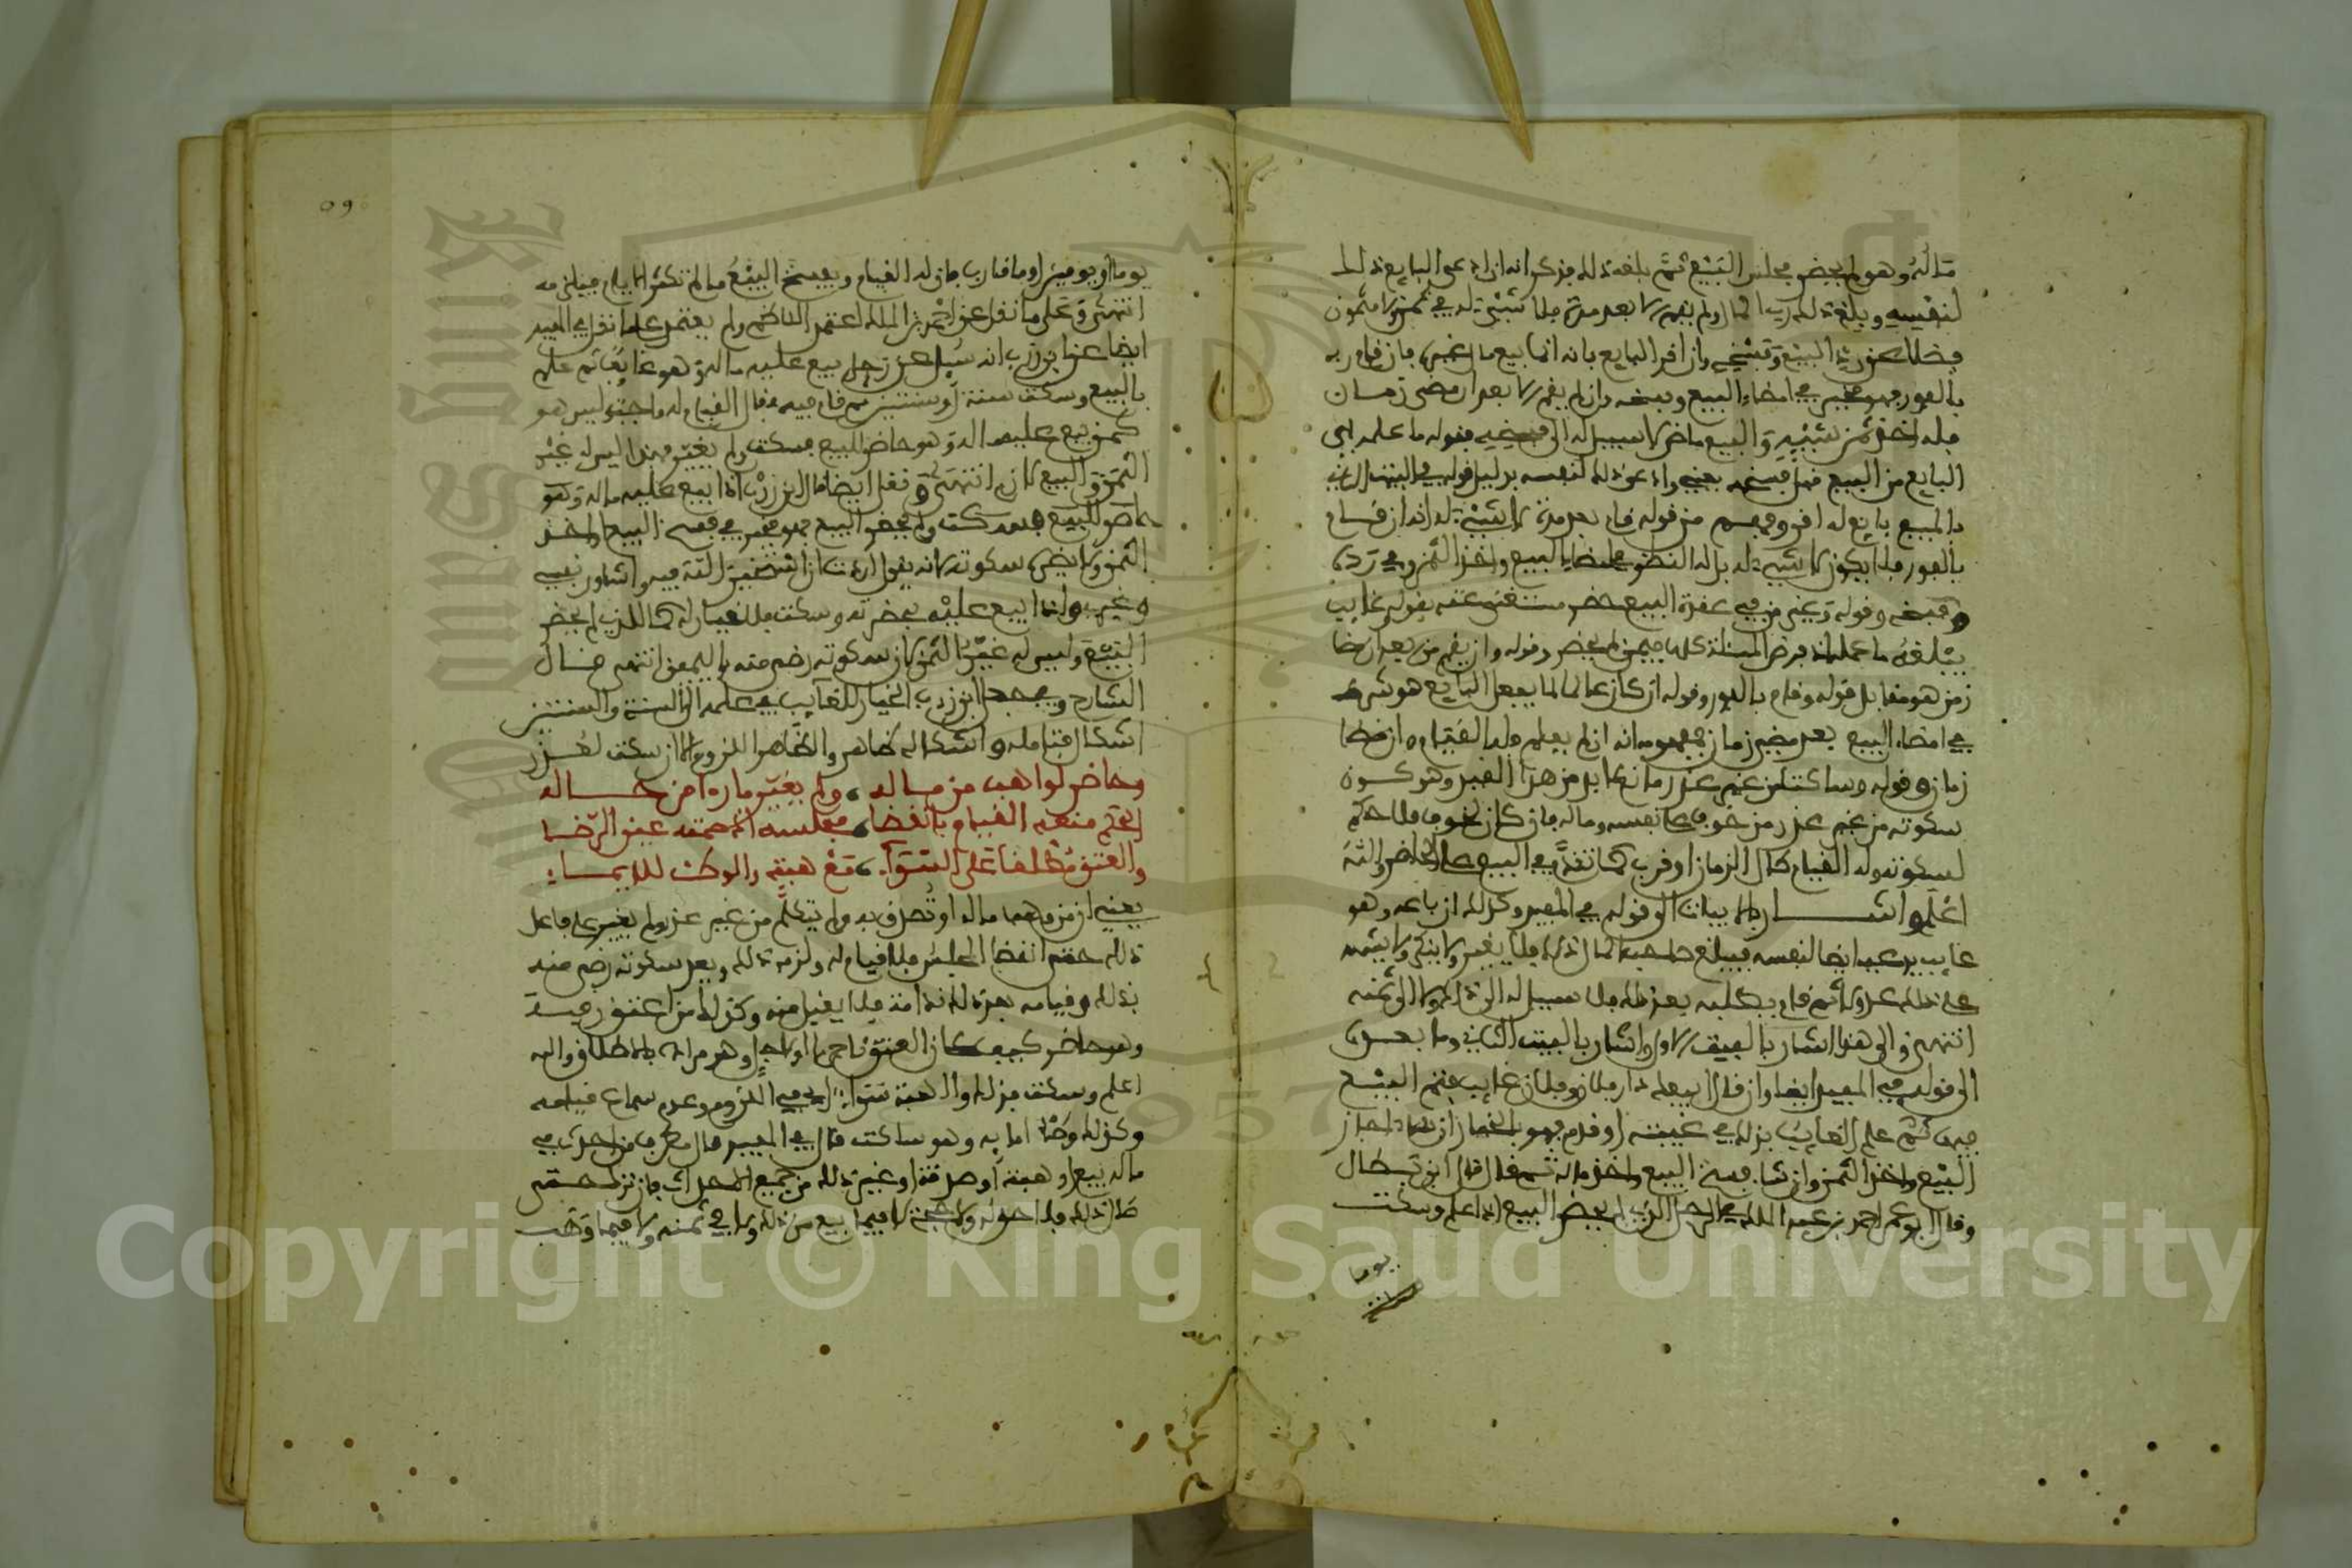 ماله وهو لم يحضر مجلس البيع ثم بلغه ذلك فذكر انه ان ادعى البايع ذلك
لنفسه وبلغ ذلك رب المال ولم يقم الا بعد مدة فلا شيء له في ثمن ولا مثمون
فضلا عن رد البيع وفسخه وان اقر البايع بانه انما يبيع مال غيره فان قام ربه
بالفور فهو مخير في امضاء البيع وفسخه وان لم يقم الا بعد ان مضى زمان
فله اخذ ثمن شيئه والبيع ماض لا سبيل له الى فسخه فقوله ما علمه اي
البايع من المبيع قبل فسخه يعني وادعى ذلك لنفسه بدليل قوله في البيت الثاني
بالمبيع بايع له اقر ومفهوم من قوله قام بعد مدة لا شيء له انه ان قام
بالفور فلا يكون لا شيء له بل له النظر في امضاء البيع واخذ الثمن وفي رده
وفسخه وقوله وغير من في عقدة البيع حضر مستغنى عنه بقوله غايب
يبلغه ما عمله اذ فرض المسئلة كلها فيمن لم يحضر وقوله وان يقم من بعد ان مضا
زمن هو مقابل قوله وقام بالفور وقوله ان كان عالما لما يفعل البايع هو شرط
في امضاء البيع بعد مضي زمان فمفهومه انه ان لم يعلم فله القيام وان مضا
زمان وقوله وساكت من غير عذر مانع لا بد من هذا القيد وهو كون
سكوته من غير عذر من خوف على نفسه وماله فان كان لخوف فلا حكم
لسكوته وله القيام طال الزمان او قرب كما تقدم في البيع على الحاضر والله
اعلم واشار بالابيات الى قوله في المفيد وكذلك ان باعه وهو
غايب يدعيه ايضا لنفسه فيبلغ صاحبه المال ذلك فلا يغير ولا ينكر ولا يشهد
على ذلك عدولا ثم قام يطلبه بعد ذلك فلا سبيل له الى ذلك ولا الى ثمنه
انتهى والى هذا اشار بالبيت الاول واشار بالبيت الثاني وما بعده
الى قوله في المفيد ايضا وان قال ابيعكم دار فلان وفلان غايب فتم البيع
فيها ثم علم الغايب بذلك في غيبته او قدم فهو بالخيار ان شاء اجاز
البيع واخذ الثمن وان شاء فسخ البيع واخذ ماله ثم قال قال ابن بطال
وقال ابو عمر احمد بن عبد الملك في الرجل الذي لم يحضر البيع اذا علم وسكت
يوما
09
يوما او يومين او ما قارب فان له القيام ويفسخ البيع ما لم تكثر الايام فيلزمه
انتهى وعلى ما نقل عن احمد بن عبد الملك اعتمد الناظم ولم يعتمد على ما نقل في المفيد
ايضا عن ابن زرب انه سئل عن رجل بيع عليه ماله وهو غايب ثم علم
بالبيع وسكت سنة او سنتين ثم قام فيه فقال القيام له واجب وليس هو
كمن بيع عليه ماله وهو حاضر للبيع فسكت ولم يغير فهذا ليس له غير
الثمن والبيع لازم انتهى ونقل ايضا قال ابن زرب اذا بيع عليه ماله وهو
حاضر للبيع فسكت ولم يحضر البيع فهو مخير في فسخ البيع او اخذ
الثمن ولا يضره سكوته لانه يقول اردت ان استخير الله فيه واشاور نفسي
وغيري واذا بيع عليه بحضرته وسكت فلا خيار له كما للذي لم يحضر
البيع وليس له غير الثمن لان سكوته رضى منه بالبيع انتهى قال
الشارح ويجعل ابن زرب الخيار للغايب في علمه الى السنة والسنتين
اشكال فتامله واشكاله ظاهر والظاهر اللزوم الا ان سكت لعذر
وحاضر لواهب من ماله ، ولم يغير ما راى من حاله
الحكم منعه القيام بانقضا ، مجلسه اذ صمته عين الرضا
والعتق مطلقا على السوا ، مع هبة والوطء للاماء
يعني ان من وهب ماله او تصدق به ولم يتكلم من غير عذر ولم يغير على فاعل
ذلك حتى انقضا المجلس فلا قيام له ولزمه ذلك ويعد سكوته رضى منه
بذلك وقيامه بعد ذلك ندامة فلا يقبل منه وكذلك من اعتق رقيقه
وهو حاضر كيف كان العتق ناجزا او لاجل وهو مراده بالاطلاق والله
اعلم وسكت فذلك والهبة سواء اي في اللزوم وعدم سماع قيامه
وكذلك وطء امائه وهو ساكت قال في المفيد قال مطرف من احدث في
ماله بيع او هبة او صدقة او غير ذلك من جميع الاحداث فان ترك حتى
طال ذلك فلا حق له ولا حجة لا فيما بيع من ذلك ولا في ثمنه ولا فيما وهب
Copyright © King Saud University
King Saud University
1957